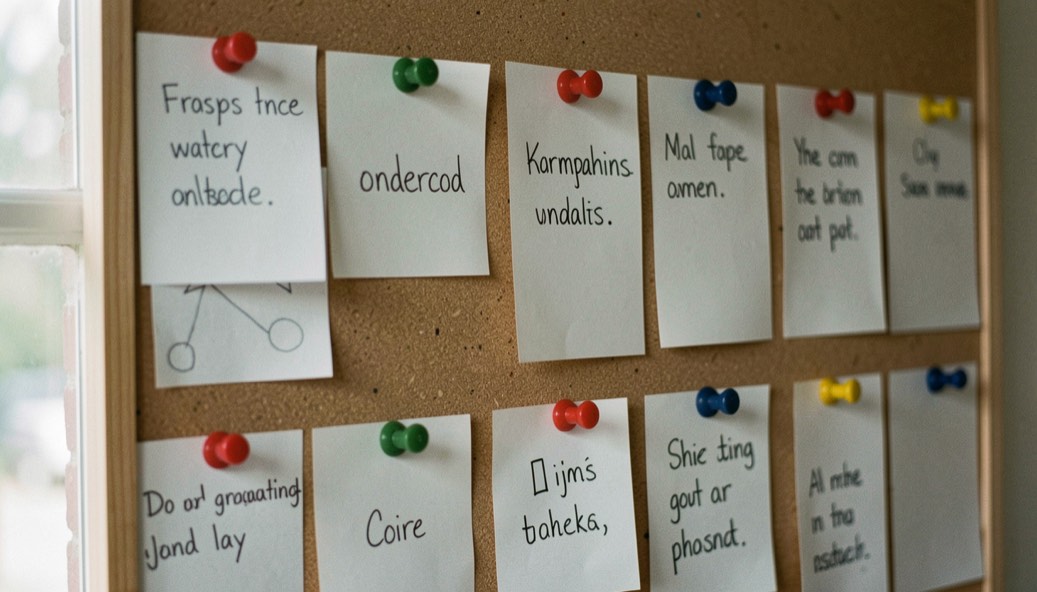 Frasps tnce
watcry
onltsode.
ondercod
Karmpahins
undalis.
Mal fope
amen.
Yhe cnn
the brtion
oat pot.
Do or' graquating
Jand lay
Coire
ijm's
taheka,
Shic ting
gout ar
phosnt.
Al mthe
in tna